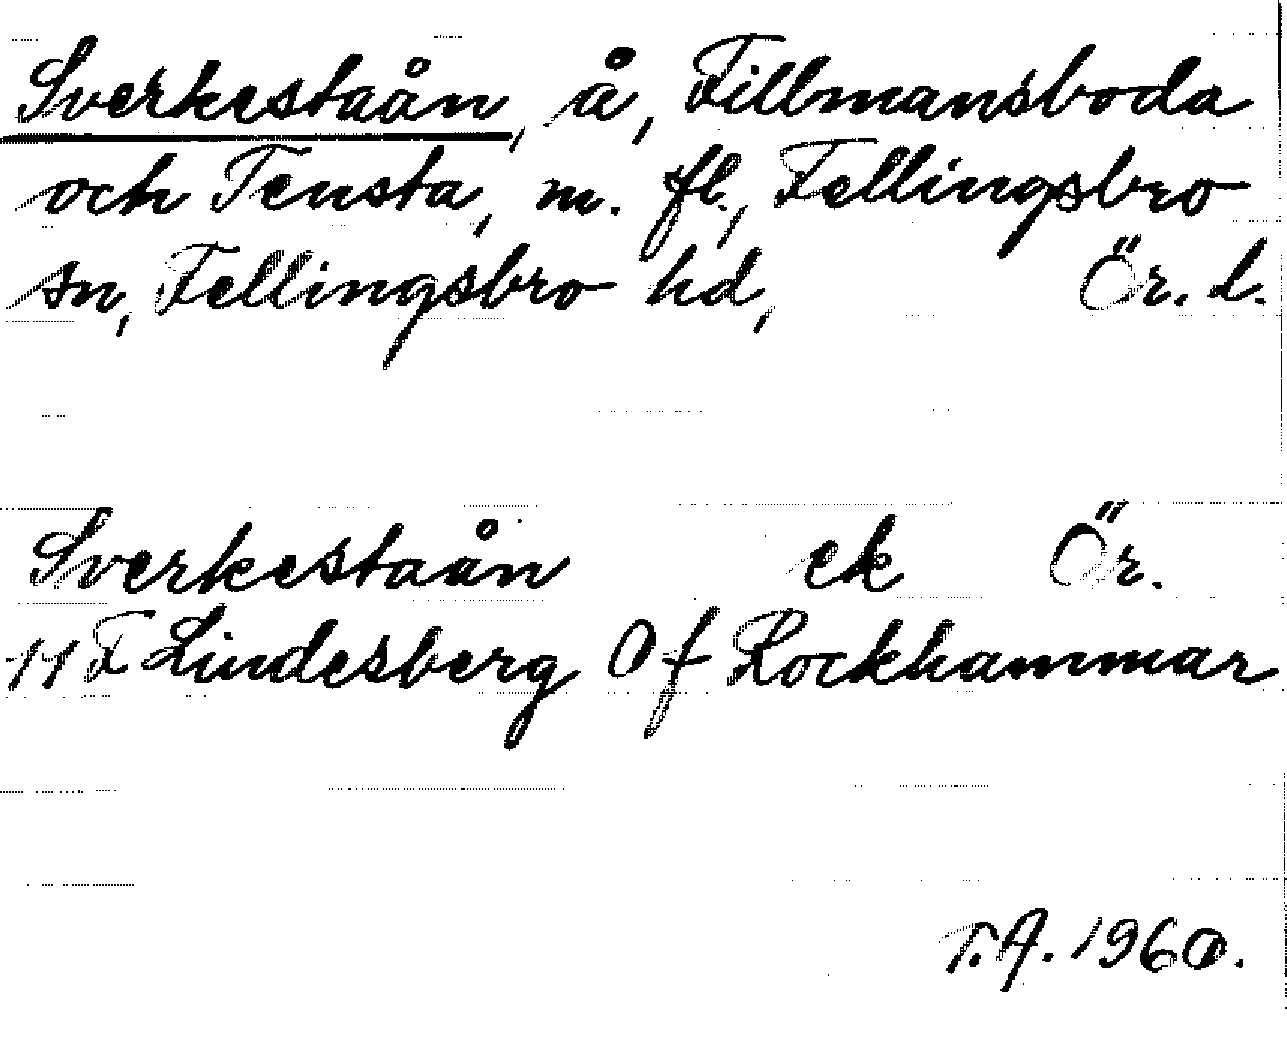 Sverkestaån, å, Fillmansboda
och Tensta, m. fl., Fellingsbro
sn, Fellingsbro hd, Ör. l.
Sverkestaån ek Ör.
11 F Lindesberg Of Rockhammar
T.A. 1960.